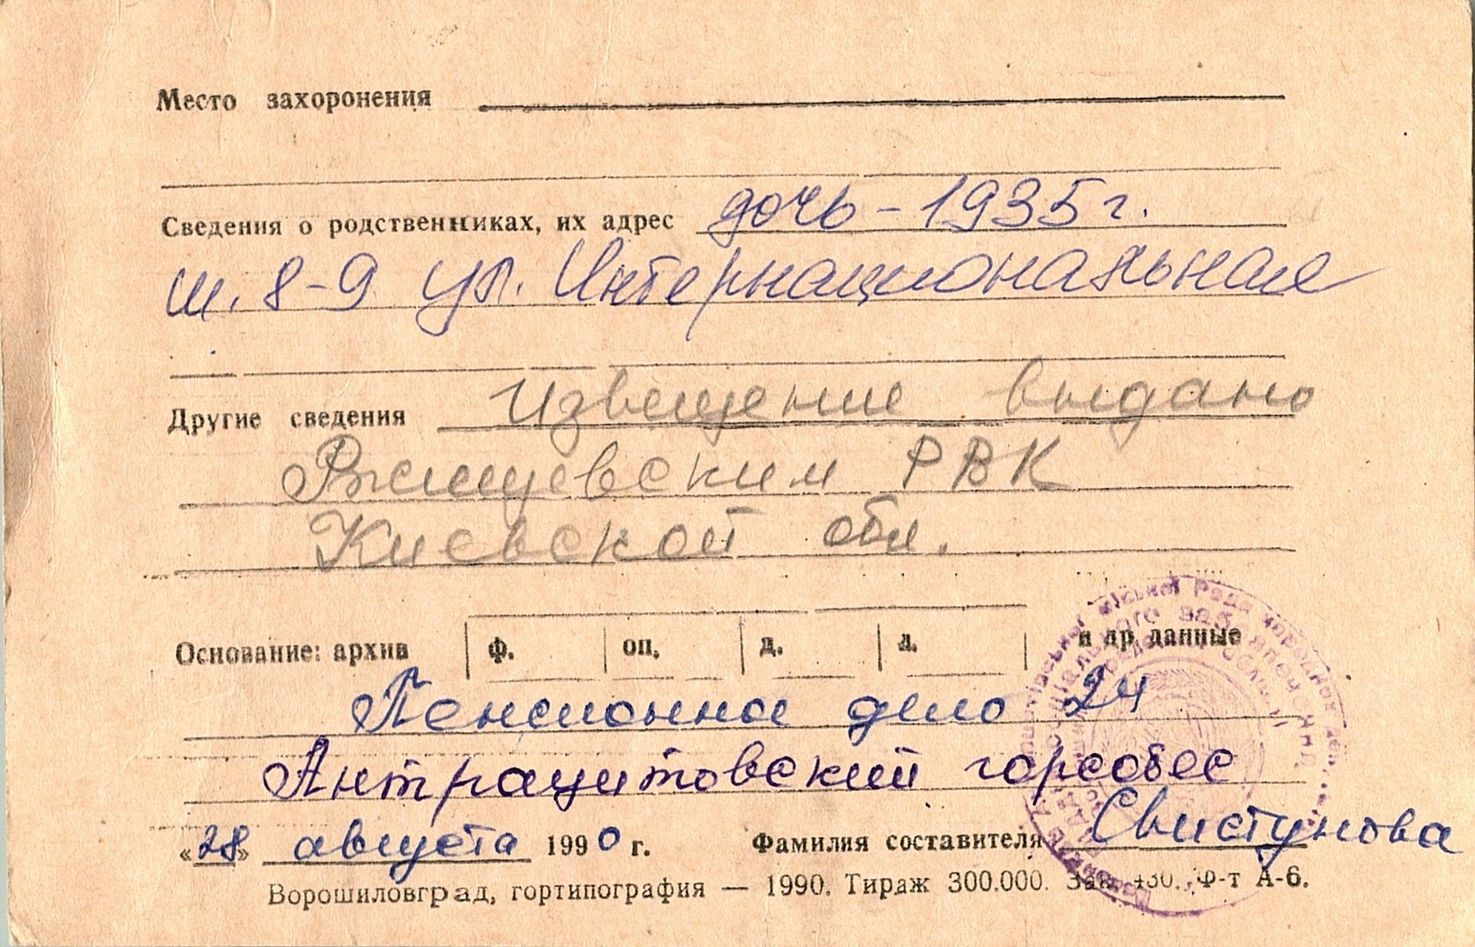 Место захоронения
Сведения о родственниках, их адрес дочь - 1935 г.
ш. 8-9 ул. Интернациональная
Другие сведения Извещение выдано
Ржищевским РВК
Киевской обл.
Основание: архив ф. оп. д. л. и др данные
Пенсионное дело 24
Антрацитовский горсобес
«28» августа 1990 г. Фамилия составителя Свистунова
Ворошиловград, гортипография — 1990. Тираж 300.000. Зак. 430. Ф-т А-6.